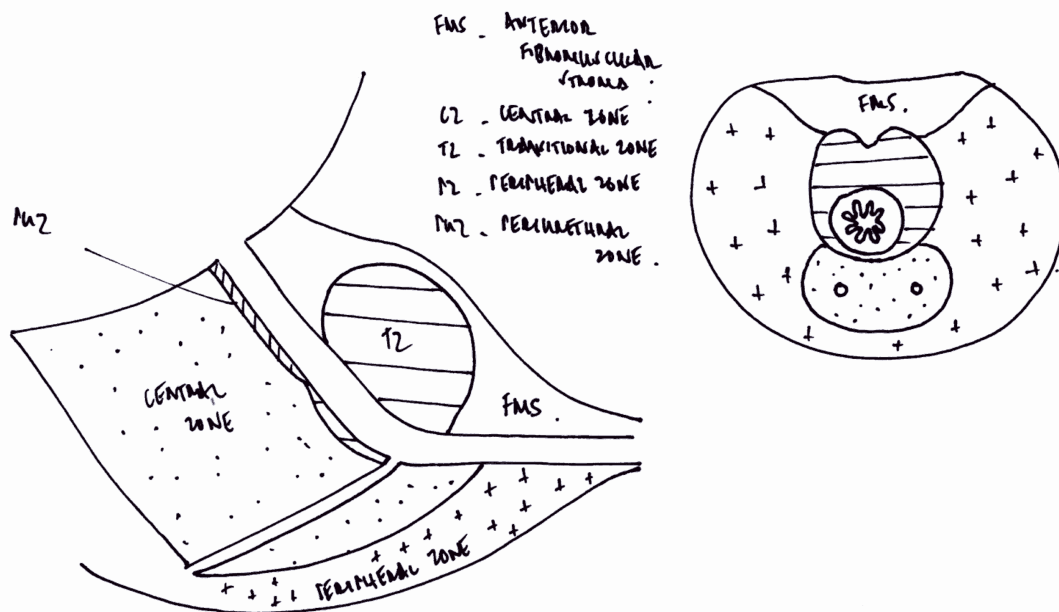 FMS - ANTERIOR
FIBROMUSCULAR
STROMA.
CZ - CENTRAL ZONE
TZ - TRANSITIONAL ZONE
PZ - PERIPHERAL ZONE
PUZ - PERIURETHRAL
ZONE.
FMS.
PUZ
TZ
CENTRAL
ZONE
FMS.
PERIPHERAL ZONE